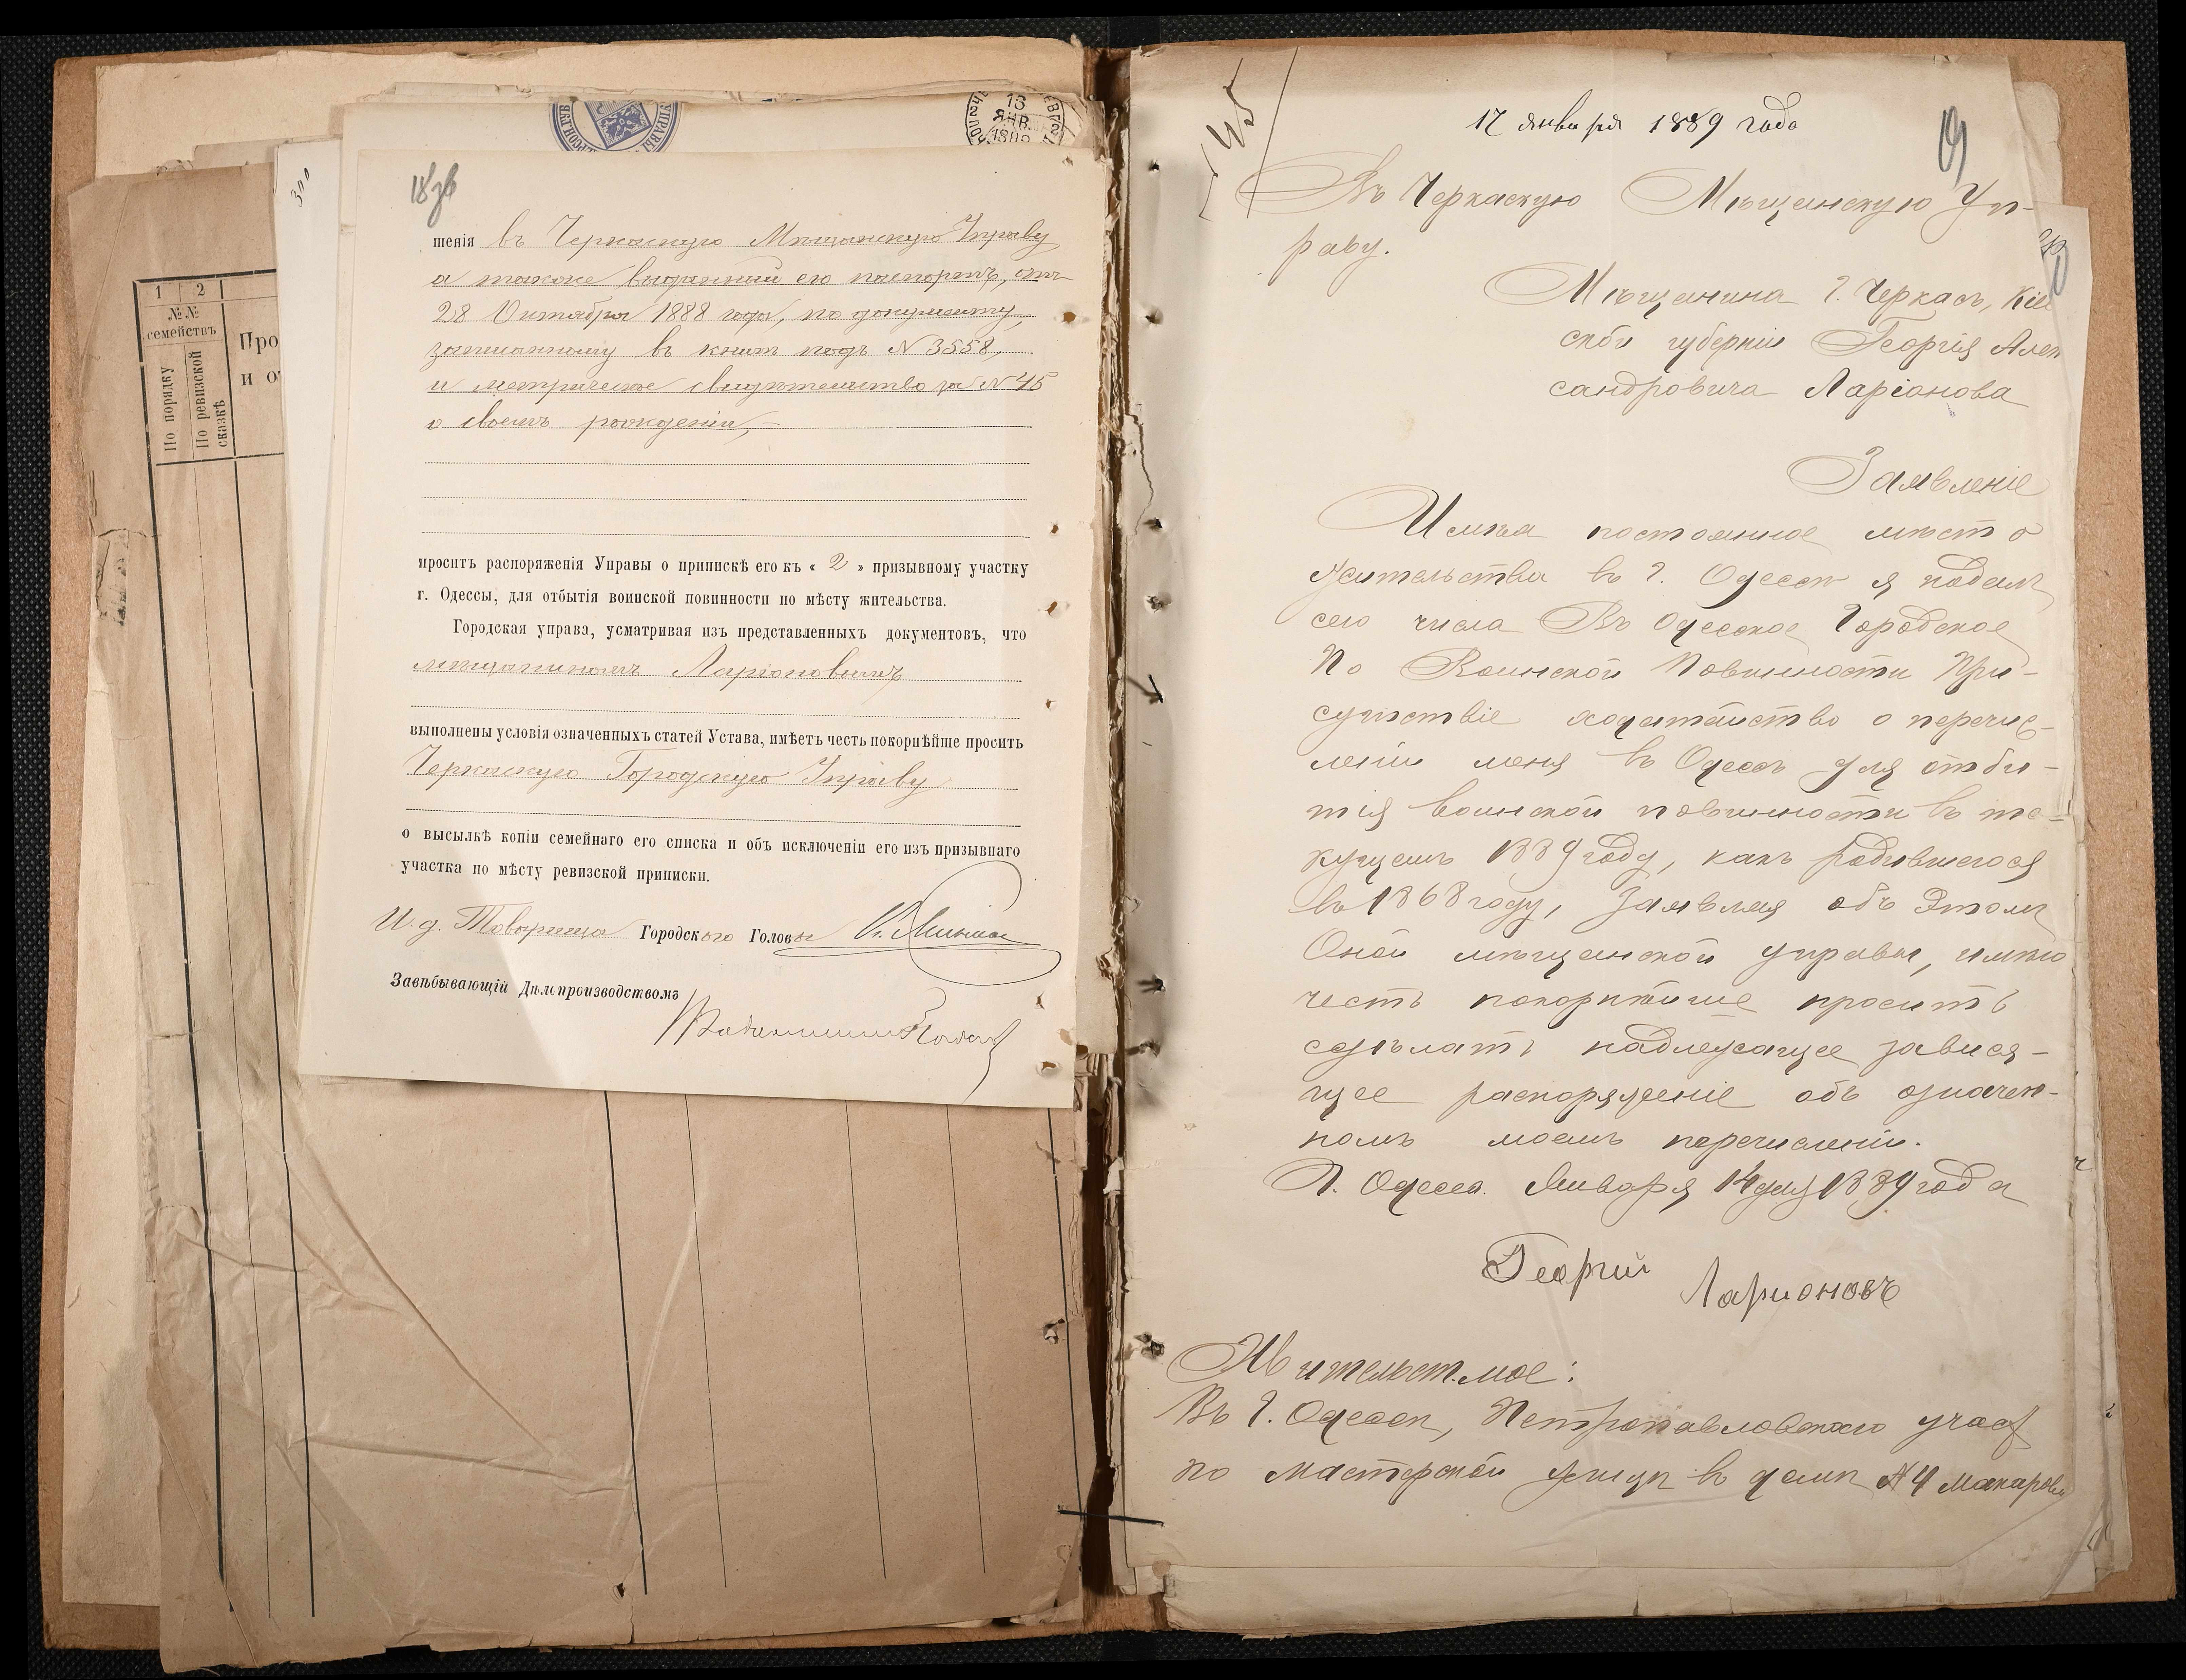 18 об
шенія въ Черкаскую Мѣщанскую Управу
а также выданный ею паспортъ, отъ
28 Октября 1888 года, по документу,
записанному въ книгѣ подъ № 3558,
и метрическое свидѣтельство за № 45
о своемъ рожденіи,
проситъ распоряженія Управы о припискѣ его къ « 2 » призывному участку
г. Одессы, для отбытія воинской повинности по мѣсту жительства.
Городская управа, усматривая изъ представленныхъ документовъ, что
мѣщаниномъ Ларіоновымъ
выполнены условія означенныхъ статей Устава, имѣетъ честь покорнѣйше просить
Черкаскую Городскую Управу
о высылкѣ копіи семейнаго его списка и объ исключеніи его изъ призывнаго
участка по мѣсту ревизской приписки.
И. д. Товарища Городского Головы
Завѣдывающій Дѣлопроизводствомъ
13
ЯНВ.
УПРАВЫ
300
1 2
№№
семействъ
По порядку
По ревизской
сказкѣ
Про
и о
145
17 января 1889 года
19
Въ Черкаскую Мѣщанскую Уп-
раву.
Мѣщанина г. Черкасъ, Кіев
ской губерніи Георгія Алек
сандровича Ларіонова
Заявленіе
Имѣя постоянное мѣсто
жительства въ г. Одессѣ я подалъ
сего числа Въ Одесское Городское
По Воинской Повинности При-
сутствіе ходатайство о перечис-
леніи меня въ Одессѣ для отбы-
тія воинской повинности въ те-
кущемъ 1889 году, какъ родившегося
въ 1868 году, Заявляя объ Этомъ
Оной мѣщанской управы, имѣю
честь покорнѣйше просить
сдѣлать надлежащее завися-
щее распоряженіе объ означен-
номъ моемъ перечисленіи.
Г. Одесса. Января 14 дня 1889 года
Георгий
Ларионовъ
Жительст. мое:
Въ г. Одессѣ, Петропавловского участ
по мастерской улицѣ въ домѣ № 4 Макарова